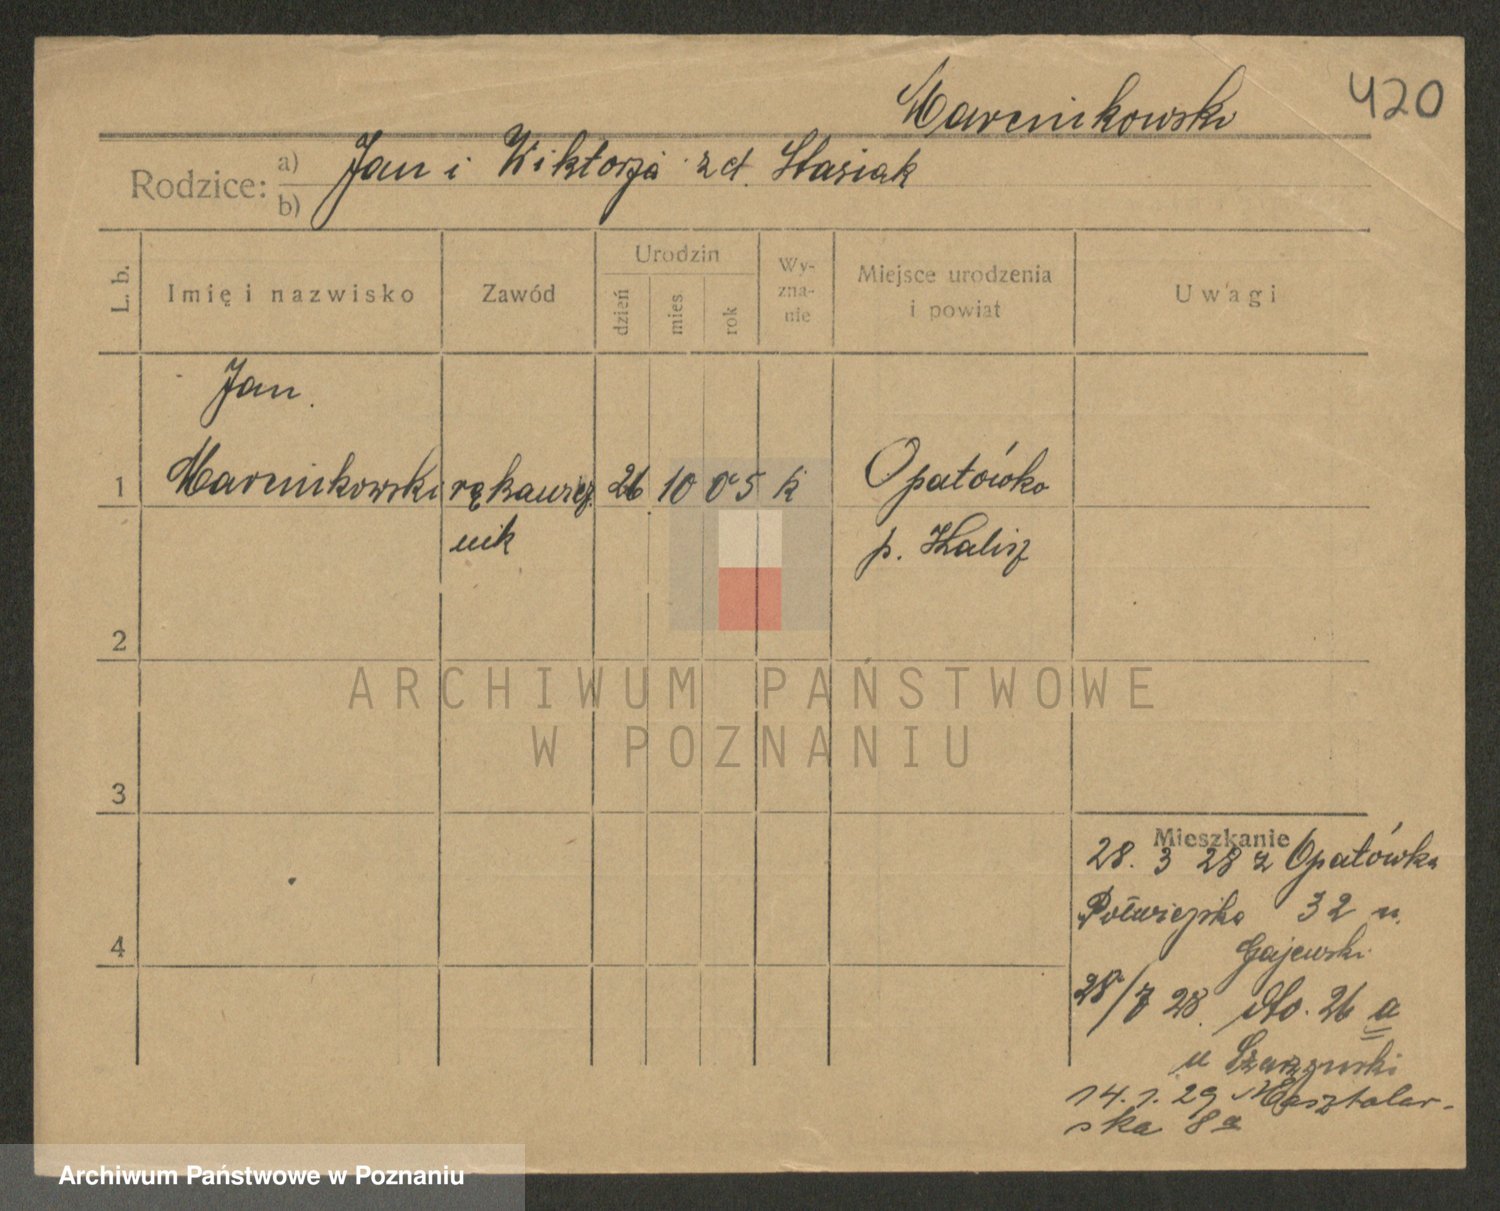 420
Marcinkowski
Rodzice: a) Jan i Wiktorja z d. Stasiak
b)
L. b.
Imię i nazwisko
Zawód
Urodzin
dzień
mies
rok
Wy-
zna-
nie
Miejsce urodzenia
i powiat
Uwagi
Jan
1 Marcinkowski rękawicz 26 10 05 k Opatówko
nik p. Kalisz
2
3
4
ARCHIWUM PAŃSTWOWE
W POZNANIU
Mieszkanie
28. 3 28 z Opatówka
Półwiejska 32 u.
Gajewski
28/7 28. dto. 26 a
u
14.1.29 Masztalar-
ska 8a
Archiwum Państwowe w Poznaniu